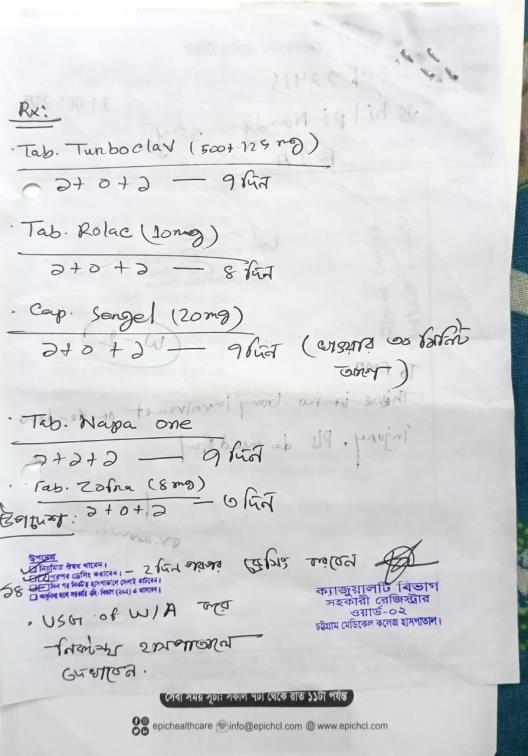 Rx:
Tab. Turboclav (500+125 mg)
১+০+১ — ৭ দিন
Tab. Rolac (10mg)
১+০+১ — ৪ দিন
Cap. Sergel (20mg)
১+০+১ — ৭ দিন (খাওয়ার ৩০ মিনিট
আগে)
Tab. Napa one
১+১+১ — ৭ দিন
Tab. Zofra (8mg)
১+০+১ — ৩ দিন
উপদেশ:
উপদেশ
নিয়মিত ঔষধ খাবেন।
পরপর ড্রেসিং করাবেন। - 2 দিন পরপর ড্রেসিং করবেন
১৪ দিন পর নিকটস্থ হাসপাতালে সেলাই কাটাবেন।
ক্যাজুয়ালটি বিভাগ
সহকারী রেজিস্ট্রার
ওয়ার্ড-০২
চট্টগ্রাম মেডিকেল কলেজ হাসপাতাল।
• USG of W/A করে
নিকটস্থ হাসপাতালে
দেখাবেন.
সেবা সময় সূচী: সকাল ৭টা থেকে রাত ১১টা পর্যন্ত
epichealthcare info@epichcl.com www.epichcl.com